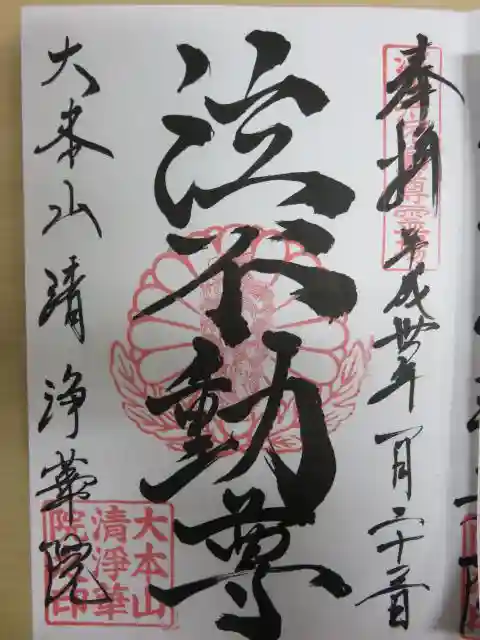 奉拝 平成卅年一月二十日
泣不動尊
大本山清浄華院
大本山
清淨華
院印